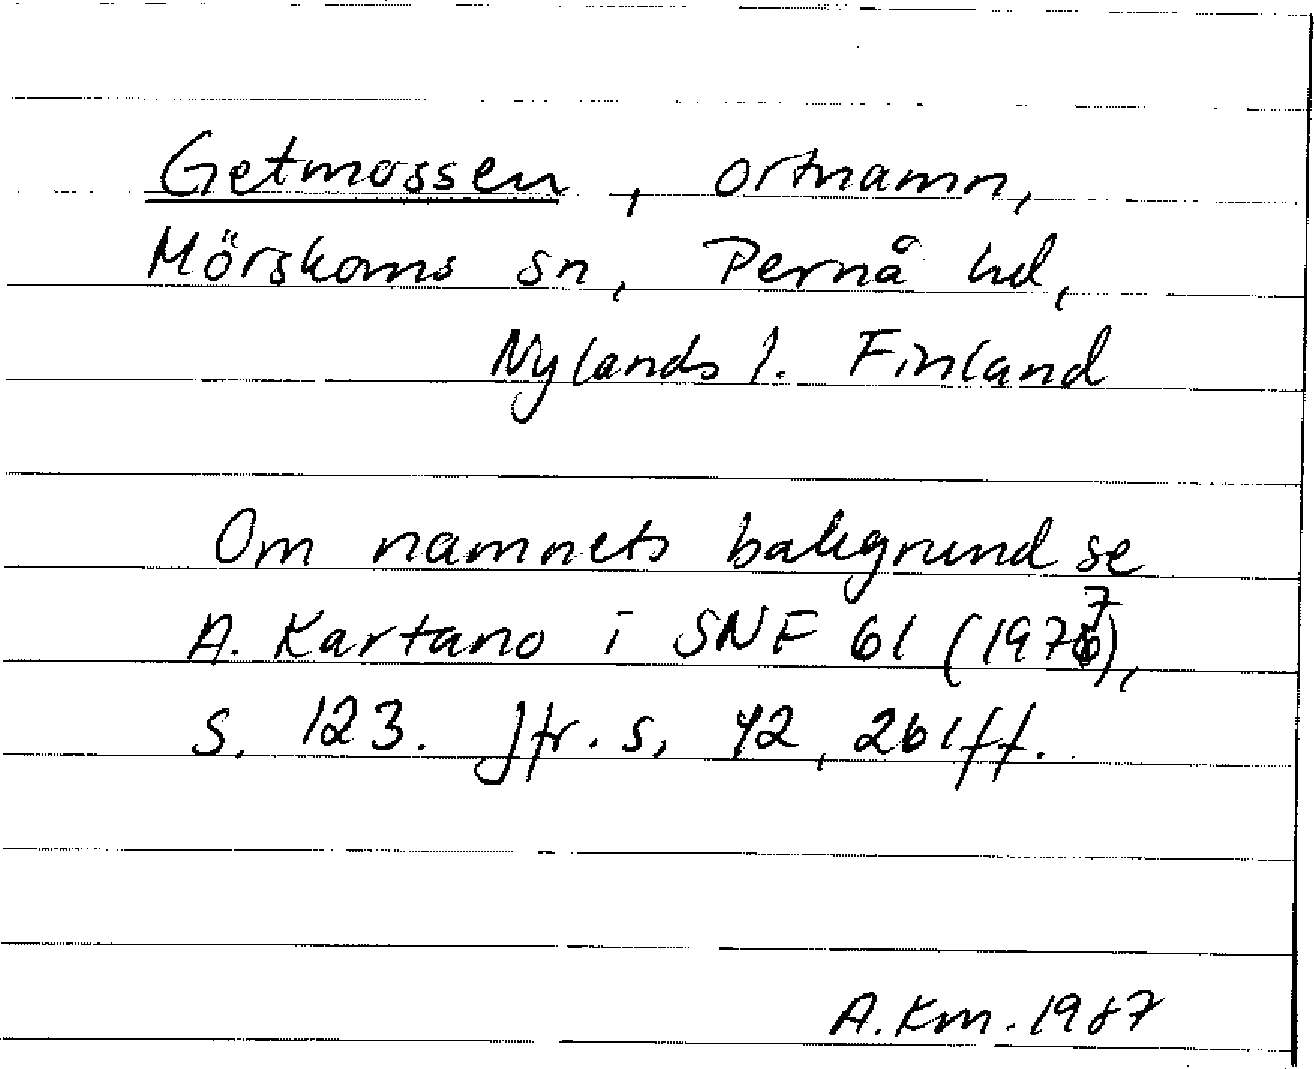 Getmossen, ortnamn,
Mörskoms sn, Pernå hd,
Nylands l. Finland
Om namnets bakgrund se
A. Kartano i SNF 61 (1977),
s. 123. Jfr. s. 42, 261ff.
A.Km. 1987